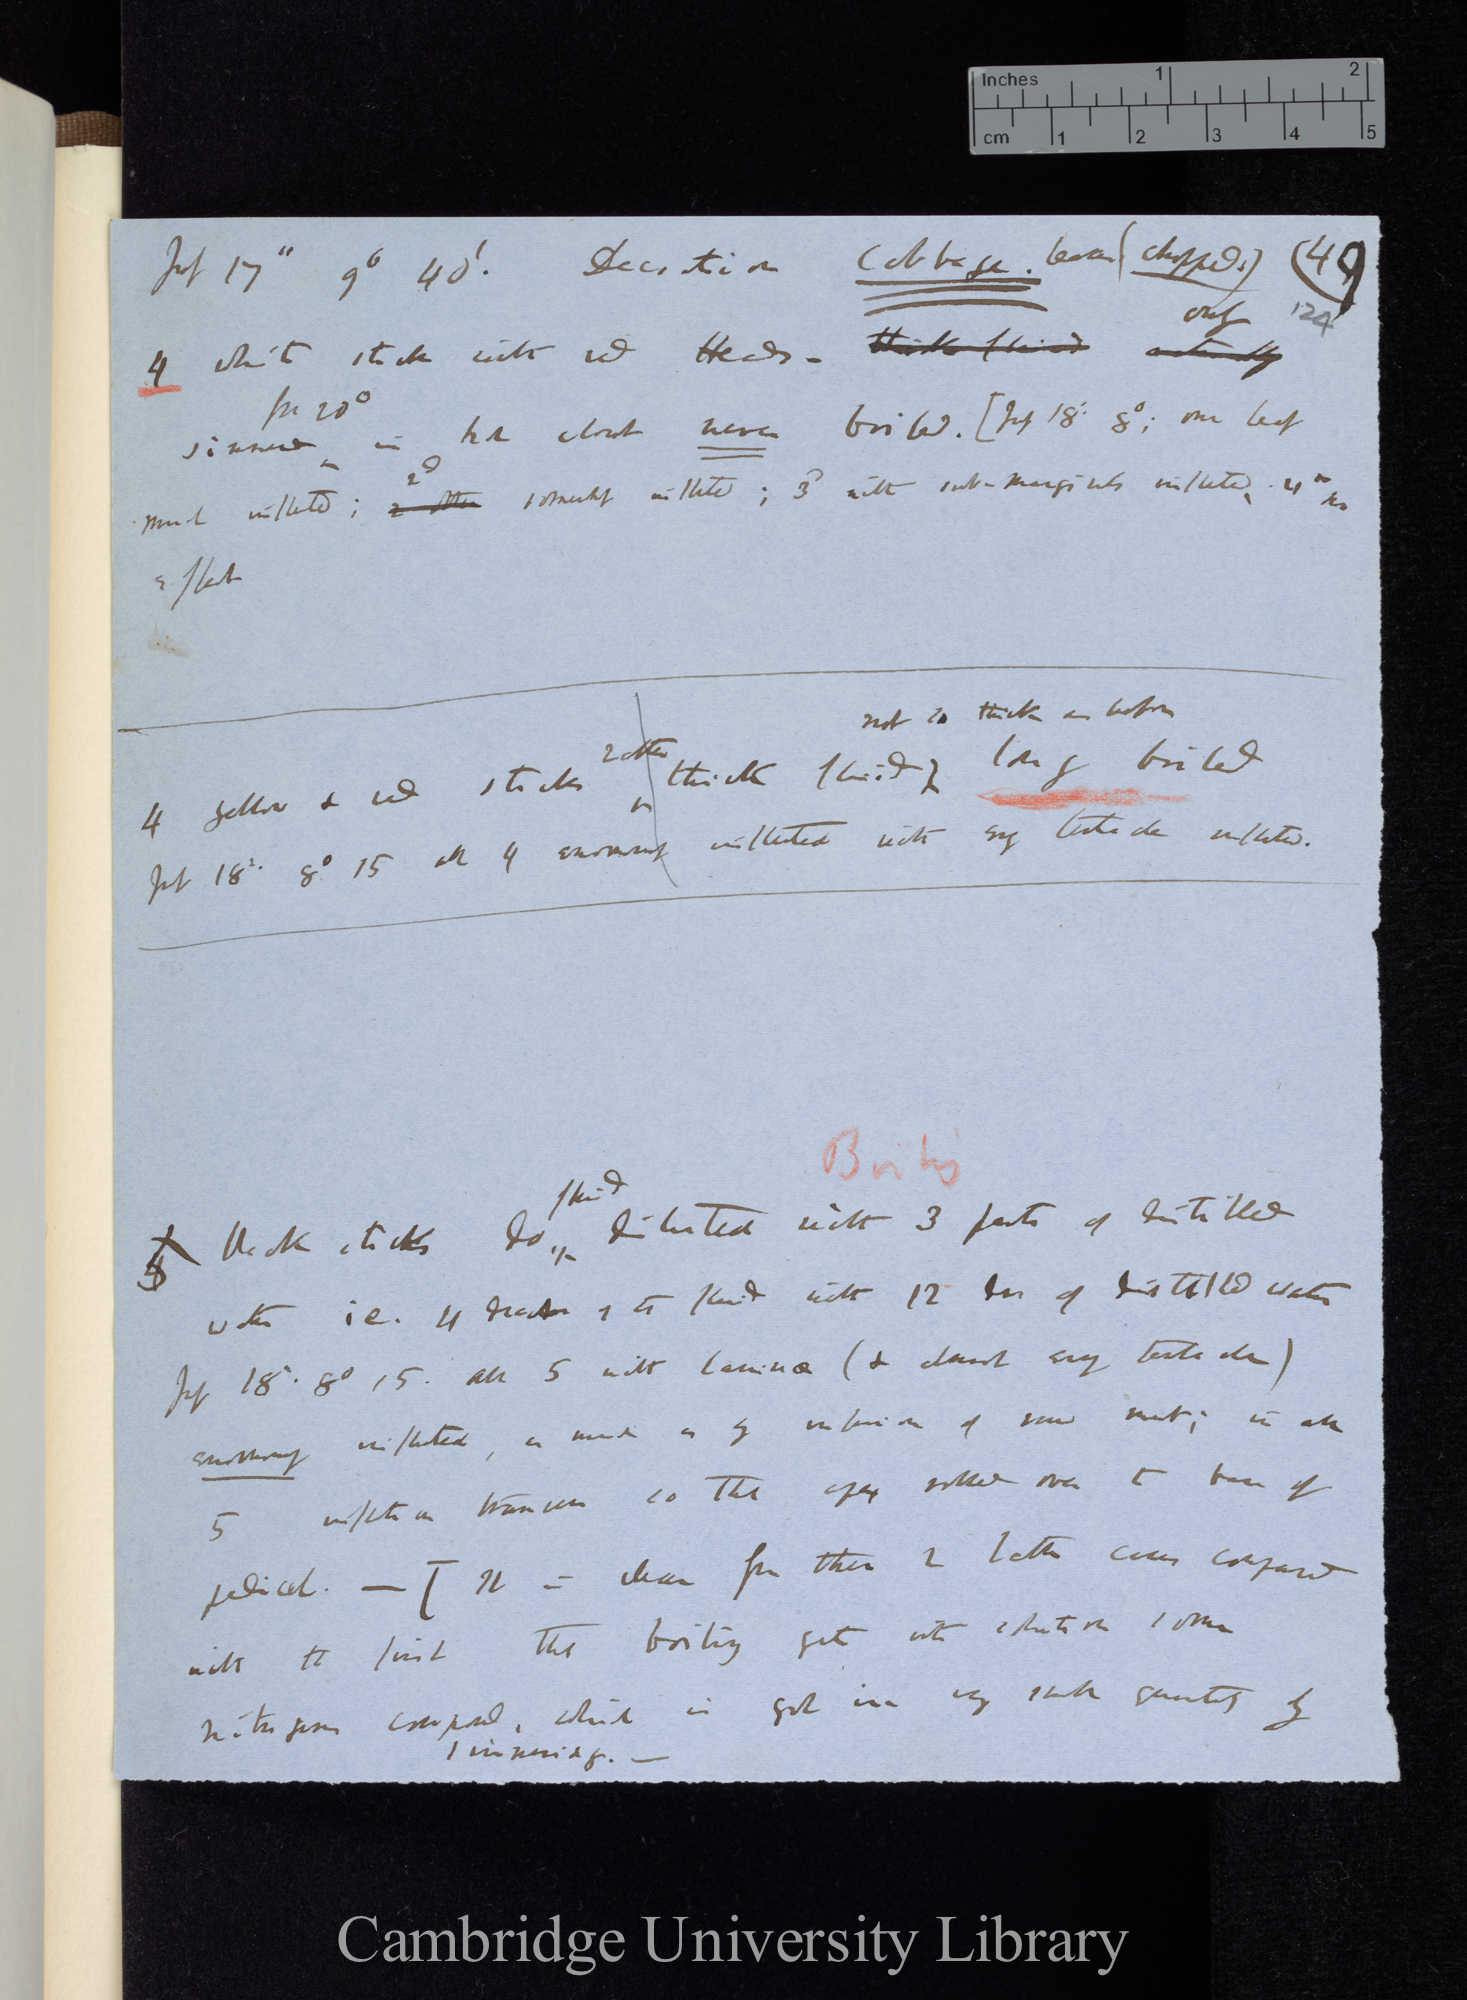 Inches 1 2
cm 1 2 3 4 5
July 17" 9° 40'. Decoction Cabbage. leaves (chopped) (49
only 124
4 white sticks with red Heads - thick fluid
for 20°
simmered in but almost never boiled. [July 18' 8°; one leaf
2d
much inflected; 2 other somewhat inflected; 3d with sub-marginals inflected. 4th no
effect
not so thick as before
4 yellow & red sticks in thick fluid long boiled
July 18' 8° 15 all 4 enormously inflected with every tentacle inflected.
Boiling
fluid
5 black sticks do diluted with 3 parts of distilled
water i.e. 4 of the fluid with 12 of distilled water
July 18' 8° 15. all 5 with lamina (& almost every tentacle)
enormously inflected, as much as by infusion of raw meat; in all
5 inflection transverse so that apex rolled over to base of
pedicel. — [It is clear from these 2 latter cases compared
with the first that boiling gets into solution some
nitrogenous compound, which is got in very small quantity by
simmering. —
Cambridge University Library